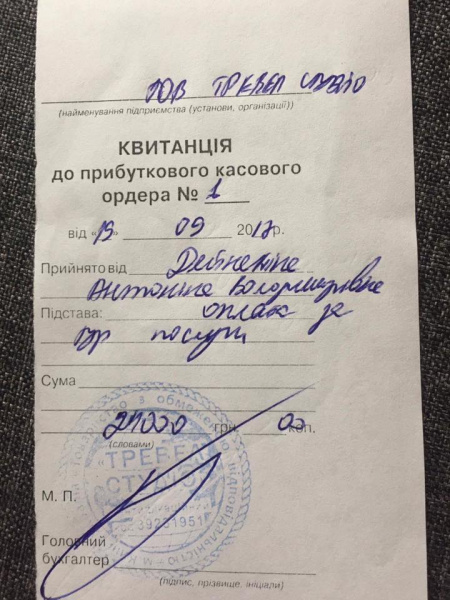 ТОВ ТРЕВЕЛ СТУДІО
(найменування підприємства (установи, організації))
КВИТАНЦІЯ
до прибуткового касового
ордера № 1
від «19» 09 2017р.
Прийнято від Дейнекіна
Антоніна Володимирівна
Підстава: оплата за
тур послуги
Сума
21000 грн. 00 коп.
(словами)
"ТРЕВЕЛ
СТУДІО"
39251951
М. П.
Головний
бухгалтер
(підпис, прізвище, ініціали)